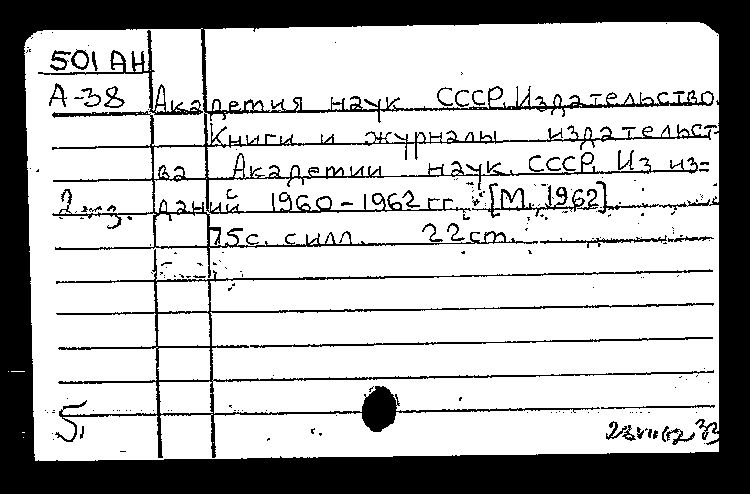 501 АН
А-38 Академия наук СССР. Издательство.
Книги и журналы издательст-
ва Академии наук СССР. Из из=
2 экз. даний 1960-1962 гг. [М. 1962]
75с. силл. 22см.
5.